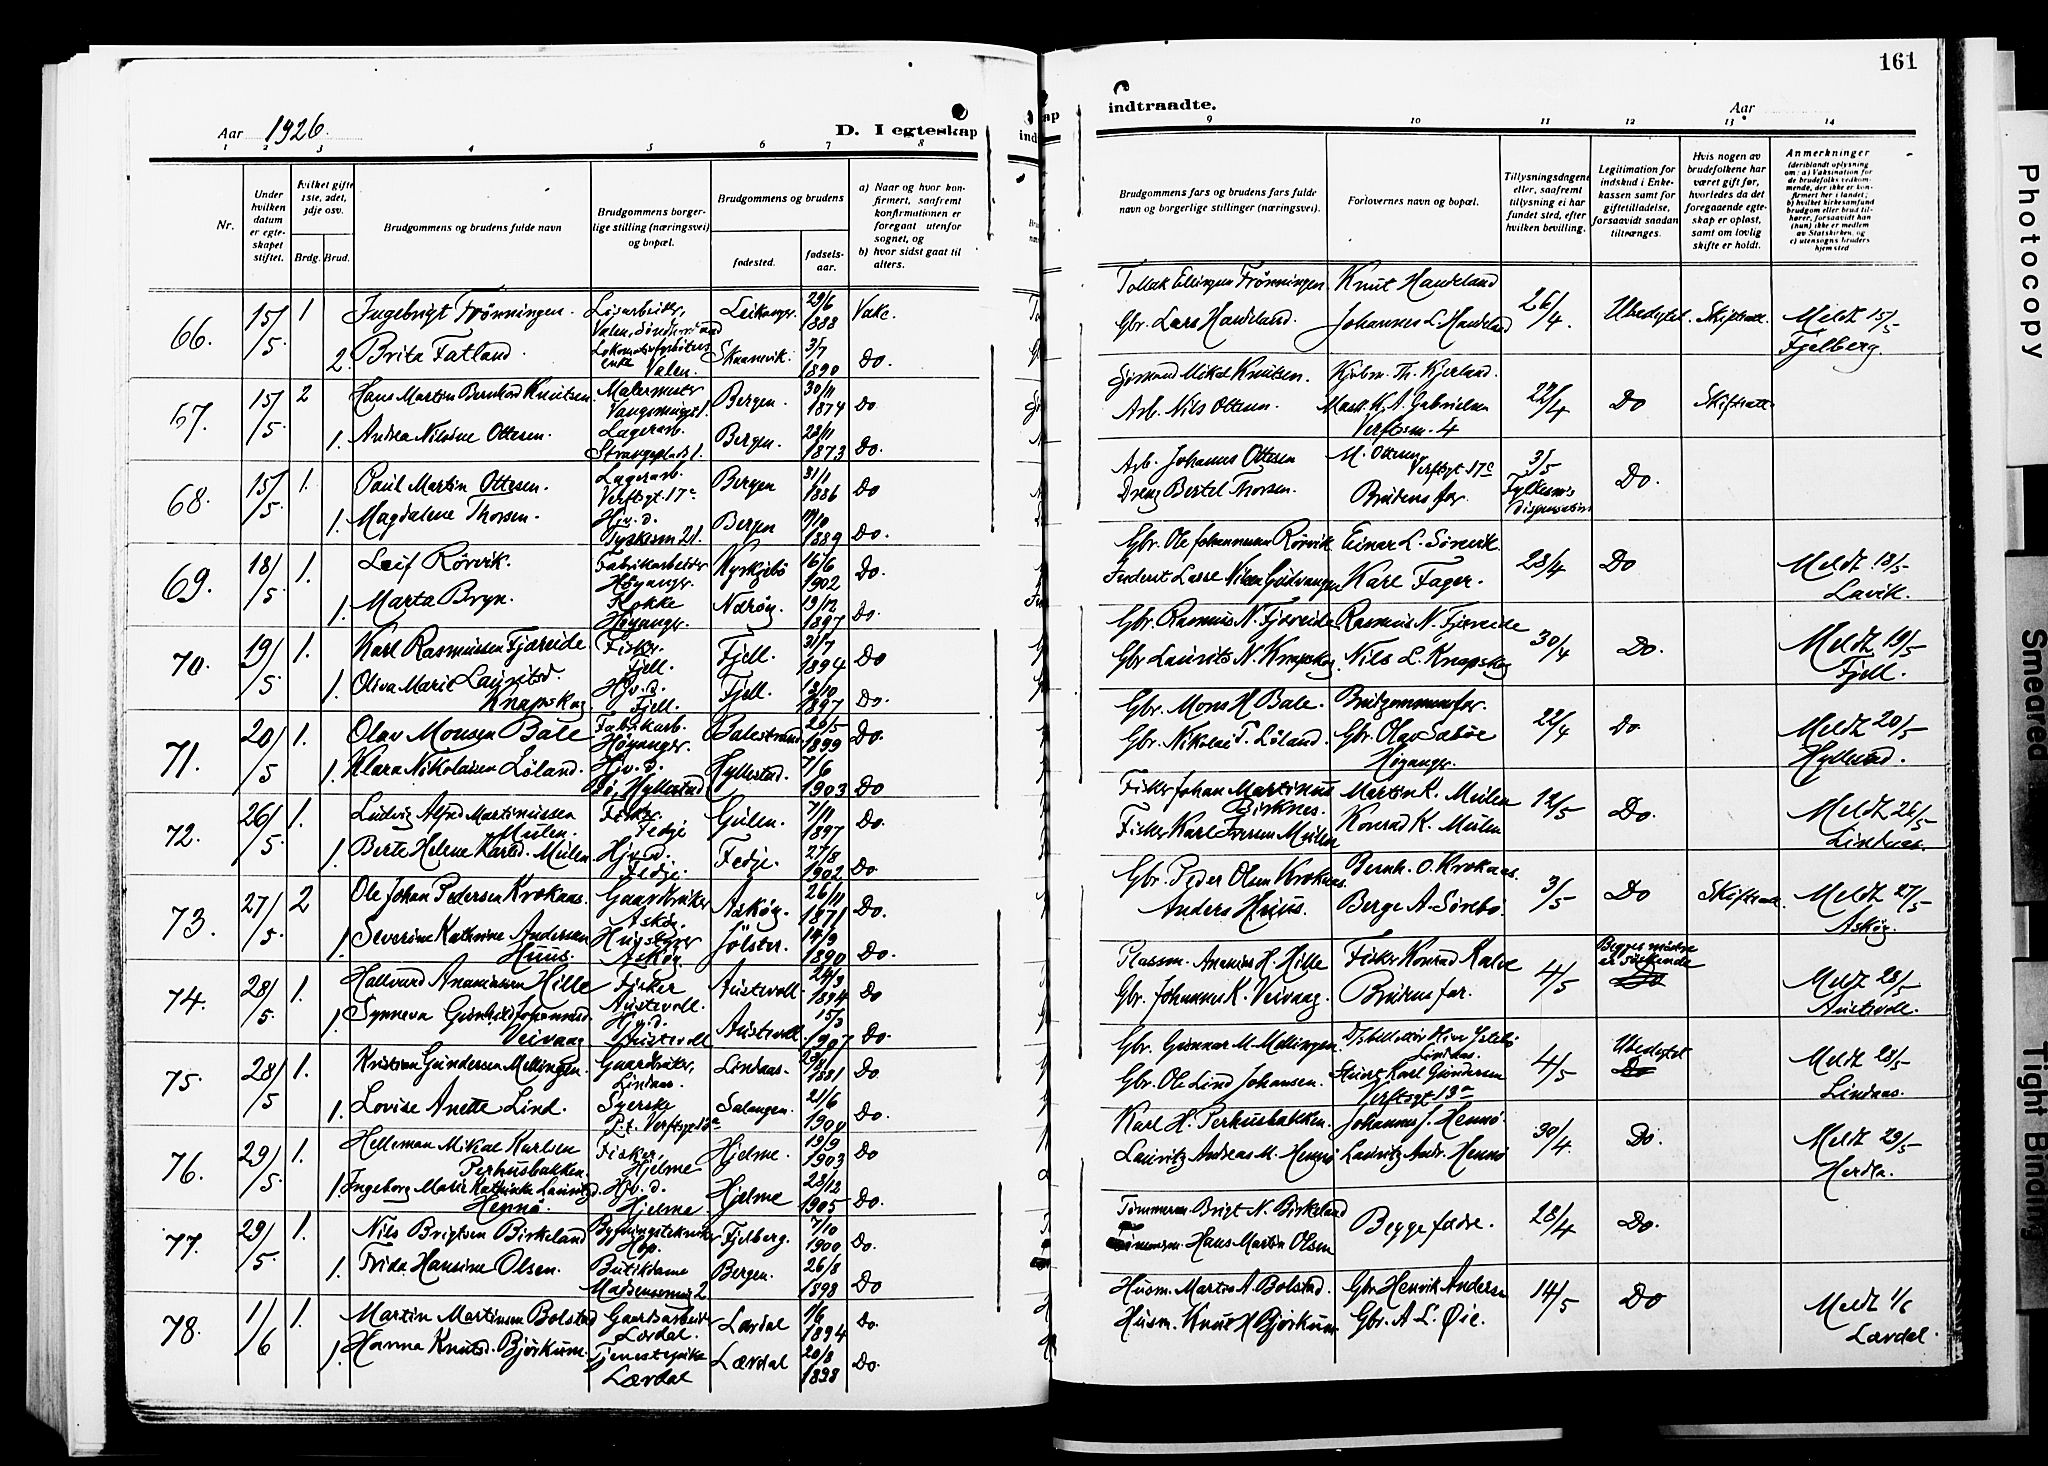 161
Aar 1926.
D. I egteskap
indtraadte.
Aar
1 2 3 4 5 6 7 8
9 10 11 12 13 14
Nr.
Under hvilken datum er egteskapet stiftet.
Hvilket gifte 1ste, 2det, 3dje osv.
Brdg. Brud.
Brudgommens og brudens fulde navn
Brudgommens borgerlige stilling (næringsvei) og bopæl.
Brudgommens og brudens
fødested.
fødselsaar.
a) Naar og hvor konfirmert, saafremt konfirmationen er foregaat utenfor sognet, og
b) hvor sidst gaat til alters.
Brudgommens fars og brudens fars fulde navn og borgerlige stillinger (næringsvei).
Forlovernes navn og bopæl.
Tillysningsdagene eller, saafremt tillysning ei har fundet sted, efter hvilken bevilling.
Legitimation for indskud i Enkekassen samt for giftetilladelse, forsaavidt saadan tiltrænges.
Hvis nogen av brudefolkene har været gift før, hvorledes da det foregaaende egteskap er opløst, samt om lovlig skifte er holdt.
Anmerkninger
66. 15/5 1 Ingebrigt Frønningen. Løsarbeider, Valen, Leikanger. 29/6 1888 Vakc.
2. Brita Fatland. Valen. Skaanevik. 3/7 1890 Do.
Tollak Ellingsen Frønningen Knut Haukeland 26/4. Ubedytet. Skifteatt. Meldt 15/5
Gbr. Lars Haukeland. Johannes L. Haukeland Fjelberg.
67. 15/5 2 Hans Martin Bernhard Knutsen Malermester Bergen. 30/11 1874 Do
1. Andrea Nilsine Ottesen. Lagerarb. Bergen. 23/11 1873 Do.
Mikal Knutsen. Kjøbm. Th. Kjerland. 22/4 Do Skifteatt.
Arb. Nils Ottesen. Mask. K. A. Gabrielsen
68. 15/5 1. Paul Martin Ottesen. Lagerarb. Verftsgt. 17c Bergen 31/1 1886 Do
1. Magdalene Thorsen. Hjv. d. Bergen 1889 Do.
Arb. Johannes Ottesen M. Ottesen Verftsgt 17c 3/5 Do.
Dreng Bertel Thorsen. Brudens far. Fylkesm's dispensation
69. 18/5 1. Leif Rørvik. Fabrikarbeider Høyanger Kyrkjebø 16/6 1902 Do.
1. Marta Bryn. Kokke Høyanger. Nærøy. 19/12 1897 Do.
Gbr. Ole Johannesen Rørvik Einar L. Sørevik. 28/4 Do Meldt 18/5
Karl Fager. Lavik.
70. 19/5 1. Karl Rasmussen Fjæreide Fisker, Fjell. Fjell. 31/7 1894 Do
1. Oliva Marie Lauritsd. Knapskog Hjv. d. Fjell. Fjell. 13/10 1897 Do.
Gbr. Rasmus N. Fjæreide Rasmus N. Fjæreide 30/4 Do. Meldt 19/5
Gbr Laurits N. Knapskog. Nils L. Knapskog Fjell.
71. 20/5 1. Olav Monsen Bale Fabrikarb. Høyanger. Balestrand. 26/5 1899 Do.
1. Klara Nikolaisen Løland. Hjv. d. Bø, Hyllestad Hyllestad. 7/6 1903 Do
Gbr. Mons H Bale. Brudgommens far. 22/4 Do. Meldt 20/5
Gbr. Nikolai T. Løland. Gbr. Olav Sæbøe Høyanger. Hyllestad.
72. 26/5 1. Ludvig Alfred Martinussen Mulen. Fisker, Fedje Gulen. 7/11 1897 Do.
1. Berte Helene Karlsd. Mulen Hjv. d. Fedje. Fedje. 27/8 1902 Do
Fisker Johan Martinus Birknes. Martin K. Mulen 12/5 Do. Meldt 26/5
Fisker Karl Iversen Mulen Konrad K. Mulen Lindaas.
73. 27/5 2 Ole Johan Pedersen Kroknas. Gaardbruker Askøy. Askøy. 26/11 1871 Do.
1. Severine Kathrine Andersen Huus. Askøy Jølster. 14/9 1890 Do.
Gbr. Peder Olsen Kroknas. Bernh. O. Kroknas. 3/5 Do Skifteatt. Meldt 27/5
Anders Huus. Berge A. Sørebø. Askøy.
74. 28/5 1. Hallvard Ananiassen Hille Fisker Austevoll. Austevoll. 24/3 1894 Do
1. Synneva Gunhild Johannesd. Veivaag Hjv. d. Austevoll Austevoll 15/3 1907 Do.
Plassm. Ananias H. Hille Fisker Konrad Kalve 4/5 Begges mødre er søskende Do Meldt 28/5
Gbr. Johannes K. Veivaag. Brudens far. Austevoll.
75. 28/5 1. Kristian Gundersen Mellingen. Gaardbruker, Lindaas. Lindaas. 1881 Do.
1. Lovise Anette Lind. Syerske P.t. Verftsgt 13a Salangen. 21/6 1900 Do.
Gbr. Gunnar M. Mellingen. Lindaas. 4/5 Ubedytet Do Meldt 28/5
Gbr. Ole Lind Johansen. Karl Gundersen Verftsgt 13a Lindaas.
76. 29/5 1. Helleman Mikal Karlsen Perhusbakken. Fisker, Hjelme Hjelme. 19/9 1903 Do
1. Ingeborg Marie Kathinka Lauritzd. Hennø. Hjv. d. Hjelme. Hjelme 28/12 1905 Do.
Karl H. Perhusbakken. Johannes J. Hennø. 30/4. Do. Meldt 29/5
Lauritz Andreas M. Hennø Lauritz Andr. Hennø Herdla.
77. 29/5 1. Nils Brigtsen Birkeland Bygningstekniker Hop. Fjelberg. 7/10 1900 Do.
1. Frida Hansine Olsen. Butikdame Bergen. 26/8 1898 Do
Tømmerm Brigt N. Birkeland Begge fædre. 28/4 Do.
Hans Martin Olsen
78. 1/6 1. Martin Martinsen Bolstad Gaardsarbeider Lærdal. Lærdal 1/6 1894 Do.
1. Hanna Knutsd. Bjørkum. Tjenestepike Lærdal Lærdal 20/8 1898 Do.
Husm. Martin A. Bolstad. Gbr. Henrik Andersen 14/5 Do Meldt 1/6
Husm. Knut H Bjørkum Gbr. A. L. Øie. Lærdal.
Photocopy
Smeared
Tight Binding